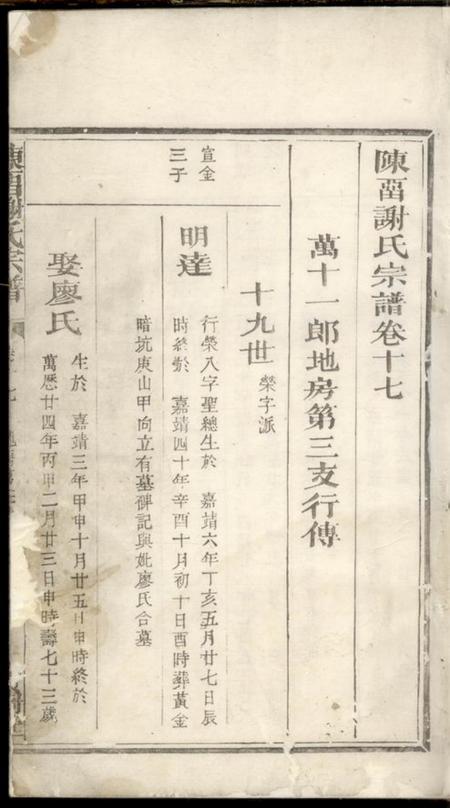 陳畱謝氏宗譜卷十七
萬十一郎地房第三支行傳
十九世 榮字派
宣金
三子
明達
行榮八字聖總生於 嘉靖六年丁亥五月廿七日辰
時終於 嘉靖四十年辛酉十月初十日酉時葬黃金
暗坑庚山甲向立有墓碑記與妣廖氏合墓
娶廖氏
生於 嘉靖三年甲申十月廿五日申時終於
萬歷廿四年丙申二月廿三日申時壽七十三歲
陳畱謝氏宗譜